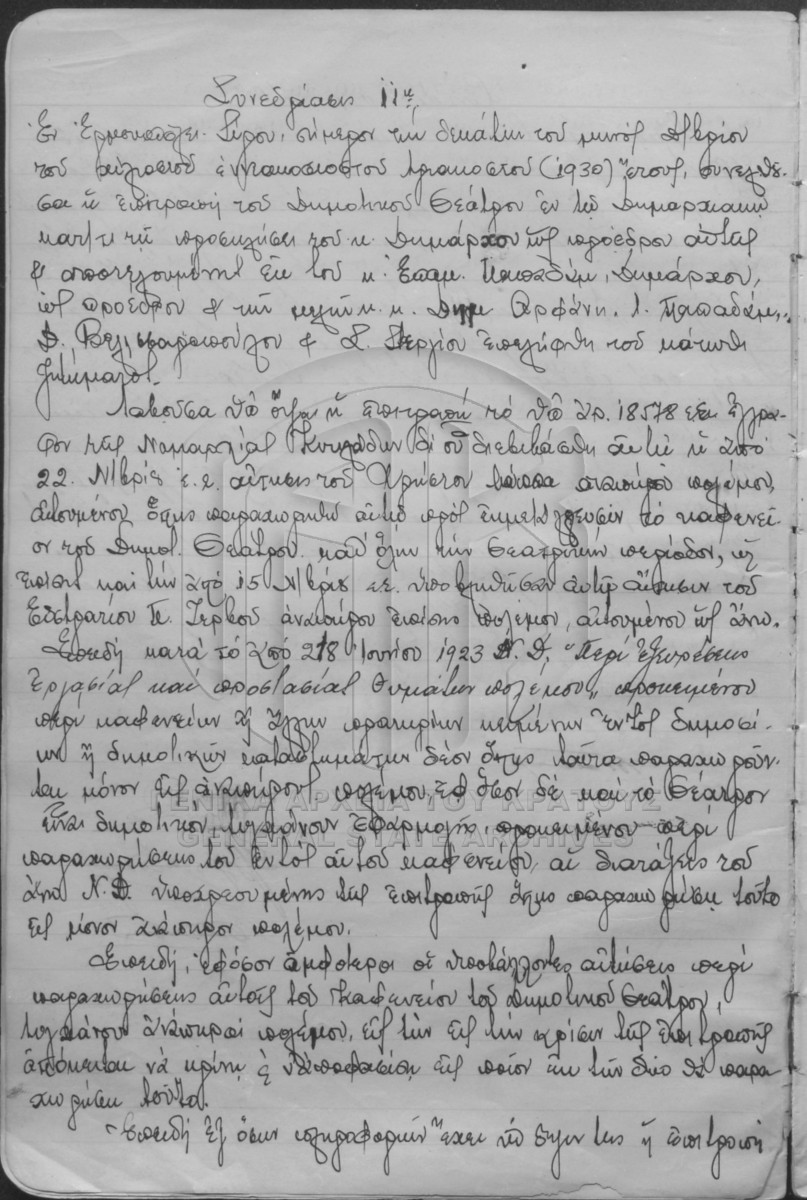 Συνεδρίασις 11η
Ἐν Ἑρμουπόλει Σύρου, σήμερον τὴν δεκάτην τοῦ μηνὸς Δ/βρίου
τοῦ χιλιοστοῦ ἐννιακοσιοστοῦ τριακοστοῦ (1930) ἔτους, συνελθοῦ-
σα ἡ Ἐπιτροπὴ τοῦ Δημοτικοῦ Θεάτρου ἐν τῷ Δημαρχιακῷ
κατ/τι τῇ προσκλήσει τοῦ κ. Δημάρχου ὡς προέδρου αὐτῆς
& ἀποτελουμένη ἐκ τοῦ κ. Ἐπαμ. Παπαδάμ, Δημάρχου,
ὡς προέδρου & τῶν μελῶν κ. κ. Δημ Ὀρφανη. Ι. Παπαδάμ,
Δ. Βελισσαροπούλου & Σ. Στεργίου ἐπελήφθη τοῦ κάτωθι
ζητήματος.
Λαβοῦσα ὑπ' ὄψει ἡ ἐπιτροπὴ τὸ ὑπ' ἀρ. 18578 ἔγγρα-
φον τῆς Νομαρχίας Κυκλάδων δι' οὗ διεβιβάσθη αὐτῇ ἡ ἀπὸ
22 Ν/βρίου ἐ.ἔ. αἴτησις τοῦ Χρήστου ἀναπήρου πολέμου,
αἰτουμένου ὅπως παραχωρηθῇ αὐτῷ πρὸς ἐκμετάλλευσιν τὸ καφενεῖ-
ον τοῦ Δημοτ. Θεάτρου καθ' ὅλην τὴν θεατρικὴν περίοδον, ὡς
ἐπίσης καὶ τὴν ἀπὸ 15 Ν/βρίου ἐ.ἔ. ὑποβληθεῖσαν αὐτῇ αἴτησιν τοῦ
Εὐστρατίου Π. Ζερβοῦ ἀναπήρου ἐπίσης πολέμου, αἰτουμένου ὡς ἄνω.
Ἐπειδὴ κατὰ τὸ ἀπὸ 28 Ἰουνίου 1923 Ν. Δ. "Περὶ ἐξευρέσεως
ἐργασίας καὶ προστασίας θυμάτων πολέμου" προκειμένου
περὶ καφενείων ἢ ἄλλων πρατηρίων κειμένων ἐντὸς δημοσί-
ων ἢ δημοτικῶν καταστημάτων δέον ὅπως ταῦτα παραχωρῶν-
ται μόνον εἰς ἀναπήρους πολέμου, ἐφ' ὅσον δὲ καὶ τὸ Θέατρον
εἶναι δημοτικὸν, τυγχάνουν ἐφαρμογῆς, προκειμένου περὶ
παραχωρήσεως τοῦ ἐντὸς αὐτοῦ καφενείου, αἱ διατάξεις τοῦ
ἄνω Ν.Δ. ὑποχρεουμένης τῆς Ἐπιτροπῆς ὅπως παραχωρήσῃ τοῦτο
εἰς μόνον ἀνάπηρον πολέμου.
Ἐπειδὴ, ἐφόσον ἀμφότεροι οἱ ὑποβάλλοντες αἰτήσεις περὶ
παραχωρήσεως αὐτοῖς τοῦ Καφενείου τοῦ Δημοτικοῦ Θεάτρου,
τυγχάνουν ἀνάπηροι πολέμου, εἰς τὴν κρίσιν τῆς Ἐπιτροπῆς
ἀπόκειται νὰ κρίνῃ & ν' ἀποφασίσῃ εἰς ποῖον ἐκ τῶν δύο θὰ παρα-
χωρήσῃ τοῦτο.
Ἐπειδὴ ἐξ ὅσων πληροφοριῶν ἔχει ὑπ' ὄψιν της ἡ Ἐπιτροπὴ
ΓΕΝΙΚΑ ΑΡΧΕΙΑ ΤΟΥ ΚΡΑΤΟΥΣ
GENERAL STATE ARCHIVES